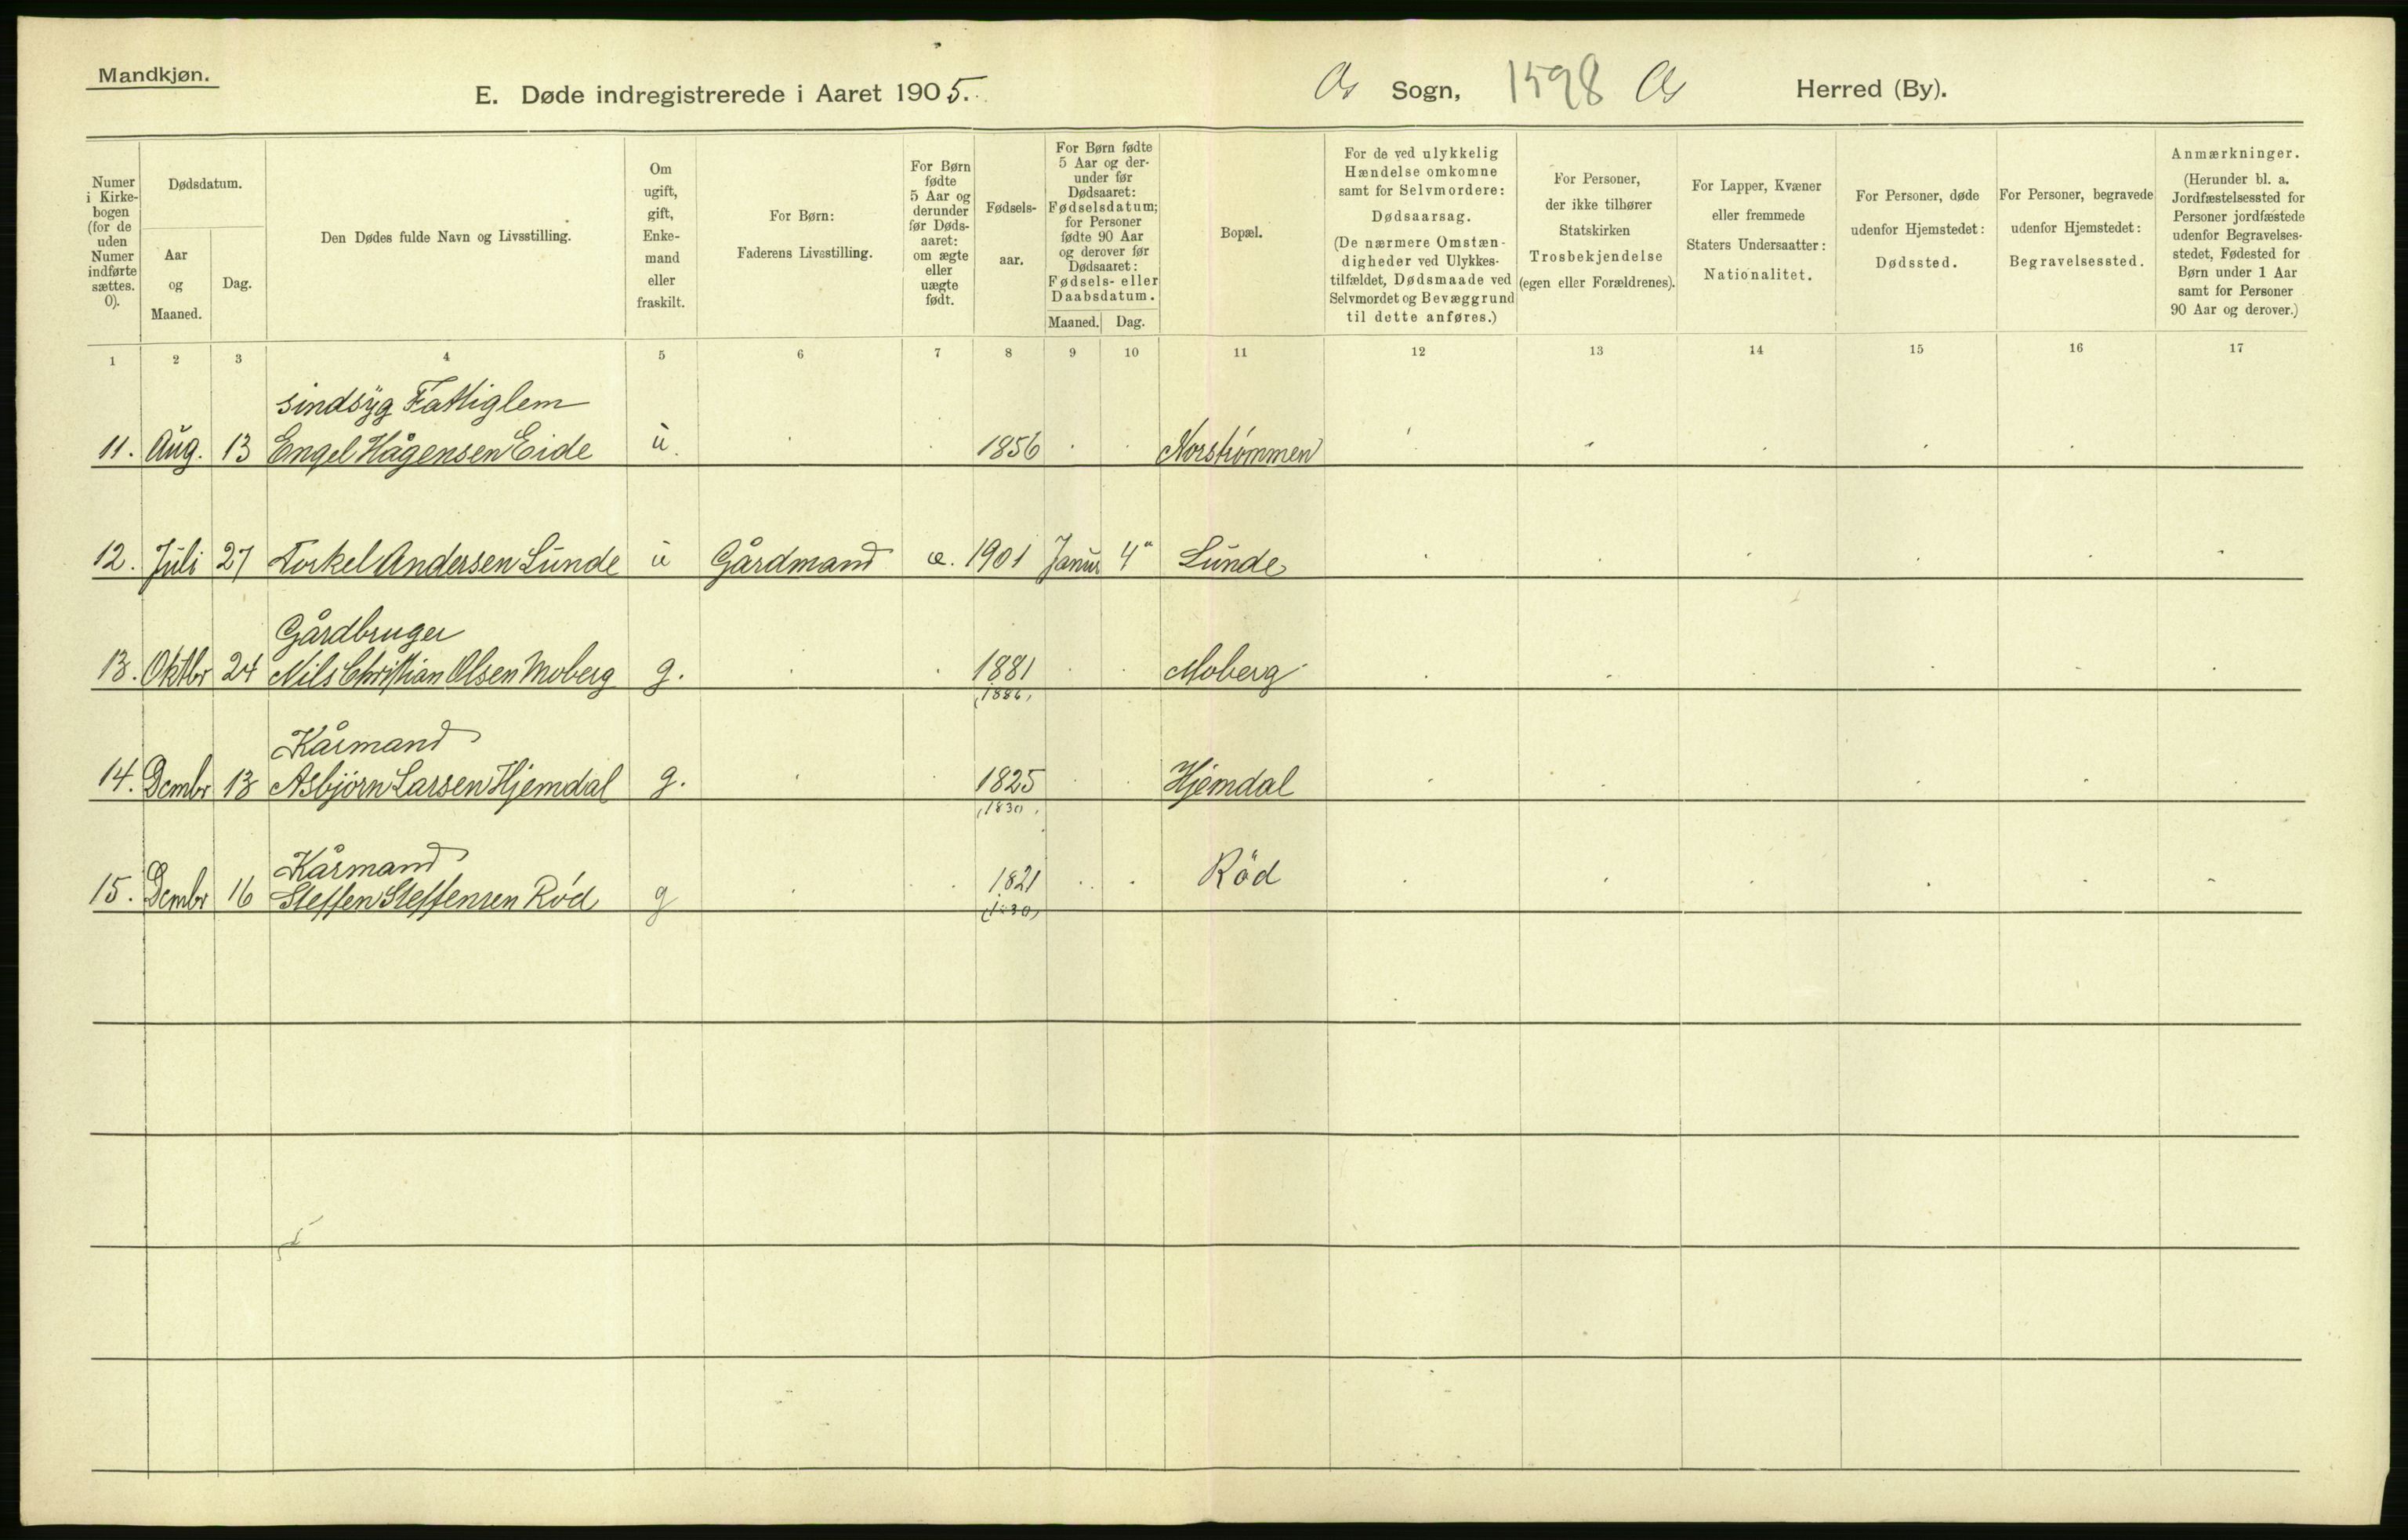 Mandkjøn.
E. Døde indregistrerede i Aaret 1905. Os Sogn, 1598 Os Herred (By).
Numer i Kirkebogen (for de uden Numer indførte sættes. 0).
Dødsdatum.
Aar og Maaned.
Dag.
Den Dødes fulde Navn og Livsstilling.
Om ugift, gift, Enkemand eller fraskilt.
For Børn: Faderens Livsstilling.
For Børn fødte 5 Aar og derunder før Dødsaaret: om ægte eller uægte født.
Fødselsaar.
For Børn fødte 5 Aar og derunder før Dødsaaret: Fødselsdatum; for Personer fødte 90 Aar og derover før Dødsaaret: Fødsels- eller Daabsdatum.
Maaned. Dag.
Bopæl.
For de ved ulykkelig Hændelse omkomne samt for Selvmordere: Dødsaarsag. (De nærmere Omstændigheder ved Ulykkestilfældet, Dødsmaade ved Selvmordet og Bevæggrund til dette anføres.)
For Personer, der ikke tilhører Statskirken Trosbekjendelse (egen eller Forældrenes).
For Lapper, Kvæner eller fremmede Staters Undersaatter: Nationalitet.
For Personer, døde udenfor Hjemstedet: Dødssted.
For Personer, begravede udenfor Hjemstedet: Begravelsessted.
Anmærkninger. (Herunder bl. a. Jordfæstelsessted for Personer jordfæstede udenfor Begravelsesstedet, Fødested for Børn under 1 Aar samt for Personer 90 Aar og derover.)
1 2 3 4 5 6 7 8 9 10 11 12 13 14 15 16 17
sindsyg Fattiglem
11. Aug. 13 Engel Hågensen Eide u. 1856 Norstrømmen
12. Juli 27 Torkel Andersen Lunde u Gårdmand æ. 1901 Janur 4 Lunde
Gårdbruger
13. Oktbr 24 Nils Christian Olsen Moberg g. 1881 Moberg
(1886)
Kårmand
14. Dcmbr 13 Asbjørn Larsen Hjemdal g. 1825 Hjemdal
(1830)
Kårmand
15. Dcmbr 16 Steffen Steffensen Rød g 1821 Röd
(1830)